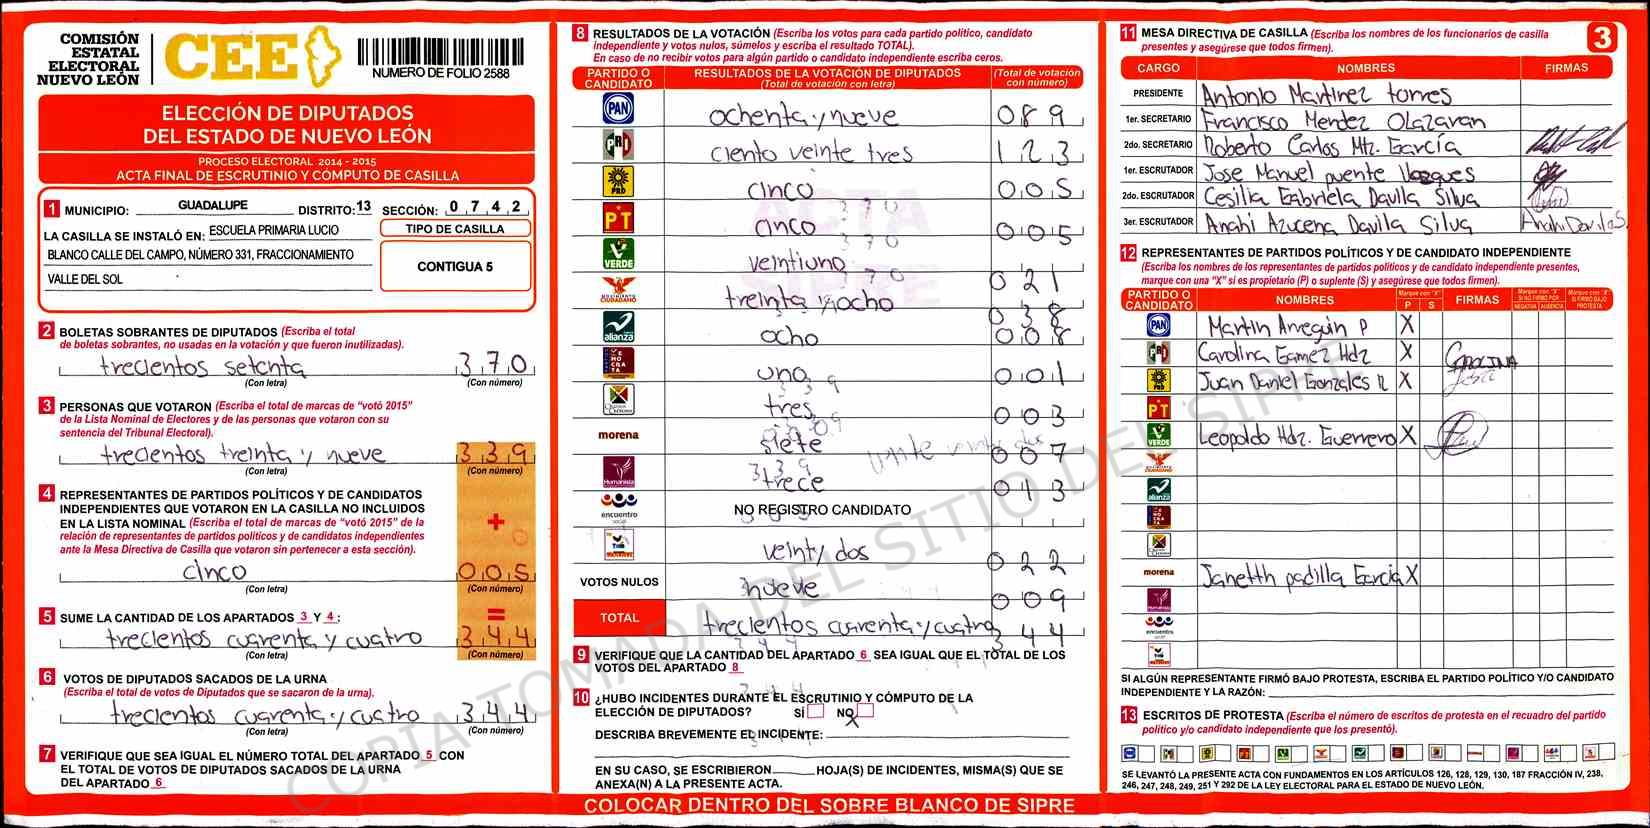 COMISIÓN
ESTATAL
ELECTORAL
NUEVO LEÓN
CEE
NUMERO DE FOLIO 2588
ELECCIÓN DE DIPUTADOS
DEL ESTADO DE NUEVO LEÓN
PROCESO ELECTORAL 2014 - 2015
ACTA FINAL DE ESCRUTINIO Y CÓMPUTO DE CASILLA
1 MUNICIPIO: GUADALUPE DISTRITO: 13 SECCIÓN: 0 7 4 2
LA CASILLA SE INSTALÓ EN: ESCUELA PRIMARIA LUCIO
BLANCO CALLE DEL CAMPO, NÚMERO 331, FRACCIONAMIENTO
VALLE DEL SOL
TIPO DE CASILLA
CONTIGUA 5
2 BOLETAS SOBRANTES DE DIPUTADOS (Escriba el total
de boletas sobrantes, no usadas en la votación y que fueron inutilizadas).
trecientos setenta 3 7 0
(Con letra) (Con número)
3 PERSONAS QUE VOTARON (Escriba el total de marcas de "votó 2015"
de la Lista Nominal de Electores y de las personas que votaron con su
sentencia del Tribunal Electoral).
trecientos treinta y nueve 3 3 9
(Con letra) (Con número)
4 REPRESENTANTES DE PARTIDOS POLÍTICOS Y DE CANDIDATOS
INDEPENDIENTES QUE VOTARON EN LA CASILLA NO INCLUIDOS
EN LA LISTA NOMINAL (Escriba el total de marcas de "votó 2015" de la
relación de representantes de partidos políticos y de candidatos independientes
ante la Mesa Directiva de Casilla que votaron sin pertenecer a esta sección).
+
cinco 0 0 5
(Con letra) (Con número)
5 SUME LA CANTIDAD DE LOS APARTADOS 3 Y 4 : =
trecientos cuarenta y cuatro 3 4 4
(Con letra) (Con número)
6 VOTOS DE DIPUTADOS SACADOS DE LA URNA
(Escriba el total de votos de Diputados que se sacaron de la urna).
trecientos cuarenta y cuatro 3 4 4
(Con letra) (Con número)
7 VERIFIQUE QUE SEA IGUAL EL NÚMERO TOTAL DEL APARTADO 5 CON
EL TOTAL DE VOTOS DE DIPUTADOS SACADOS DE LA URNA
DEL APARTADO 6
8 RESULTADOS DE LA VOTACIÓN (Escriba los votos para cada partido político, candidato
independiente y votos nulos, súmelos y escriba el resultado TOTAL).
En caso de no recibir votos para algún partido o candidato independiente escriba ceros.
PARTIDO O CANDIDATO RESULTADOS DE LA VOTACIÓN DE DIPUTADOS (Total de votación con letra) (Total de votación con número)
PAN ochenta y nueve 0 8 9
PRI ciento veinte tres 1 2 3
PRD cinco 0 0 5
PT cinco 0 0 5
VERDE veintiuno 0 2 1
MOVIMIENTO CIUDADANO treinta y ocho 0 3 8
alianza ocho 0 0 8
DEMOCRATA uno 0 0 1
tres 0 0 3
morena siete 0 0 7
Humanista trece 0 1 3
encuentro social NO REGISTRO CANDIDATO
veinty dos 0 2 2
VOTOS NULOS nueve 0 0 9
TOTAL trecientos cuarenta y cuatro 3 4 4
9 VERIFIQUE QUE LA CANTIDAD DEL APARTADO 6 SEA IGUAL QUE EL TOTAL DE LOS
VOTOS DEL APARTADO 8
10 ¿HUBO INCIDENTES DURANTE EL ESCRUTINIO Y CÓMPUTO DE LA
ELECCIÓN DE DIPUTADOS? SÍ NO X
DESCRIBA BREVEMENTE EL INCIDENTE:
EN SU CASO, SE ESCRIBIERON HOJA(S) DE INCIDENTES, MISMA(S) QUE SE
ANEXA(N) A LA PRESENTE ACTA.
COLOCAR DENTRO DEL SOBRE BLANCO DE SIPRE
11 MESA DIRECTIVA DE CASILLA (Escriba los nombres de los funcionarios de casilla
presentes y asegúrese que todos firmen).
3
CARGO NOMBRES FIRMAS
PRESIDENTE Antonio Martinez torres
1er. SECRETARIO Francisco Mendez Olazaran
2do. SECRETARIO Roberto Carlos Mtz. García
1er. ESCRUTADOR Jose Manuel puente Vazques
2do. ESCRUTADOR Cesilia Gabriela Davila Silva
3er. ESCRUTADOR Anahi Azucena Davila Silva Anahi Davila S.
12 REPRESENTANTES DE PARTIDOS POLÍTICOS Y DE CANDIDATO INDEPENDIENTE
(Escriba los nombres de los representantes de partidos políticos y de candidato independiente presentes,
marque con una "X" si es propietario (P) o suplente (S) y asegúrese que todos firmen).
PARTIDO O CANDIDATO NOMBRES Marque con "X" P S FIRMAS Marque con "X" SI NO FIRMÓ POR NEGATIVA AUSENCIA Marque con "X" SI FIRMÓ BAJO PROTESTA
PAN Martin Arreguin P X
PRI Carolina Gamez Hdz X CAROLINA
PRD Juan Daniel Gonzales R X
PT
VERDE Leopoldo Hdz. Guerrero X
alianza
morena Janetth padilla Garcia X
Humanista
encuentro social
SI ALGÚN REPRESENTANTE FIRMÓ BAJO PROTESTA, ESCRIBA EL PARTIDO POLÍTICO Y/O CANDIDATO
INDEPENDIENTE Y LA RAZÓN:
13 ESCRITOS DE PROTESTA (Escriba el número de escritos de protesta en el recuadro del partido
político y/o candidato independiente que los presentó).
SE LEVANTÓ LA PRESENTE ACTA CON FUNDAMENTOS EN LOS ARTÍCULOS 126, 128, 129, 130, 187 FRACCIÓN IV, 238,
246, 247, 248, 249, 251 Y 292 DE LA LEY ELECTORAL PARA EL ESTADO DE NUEVO LEÓN.
ACTA SIPRE
COPIA TOMADA DEL SITIO DEL SIPRE